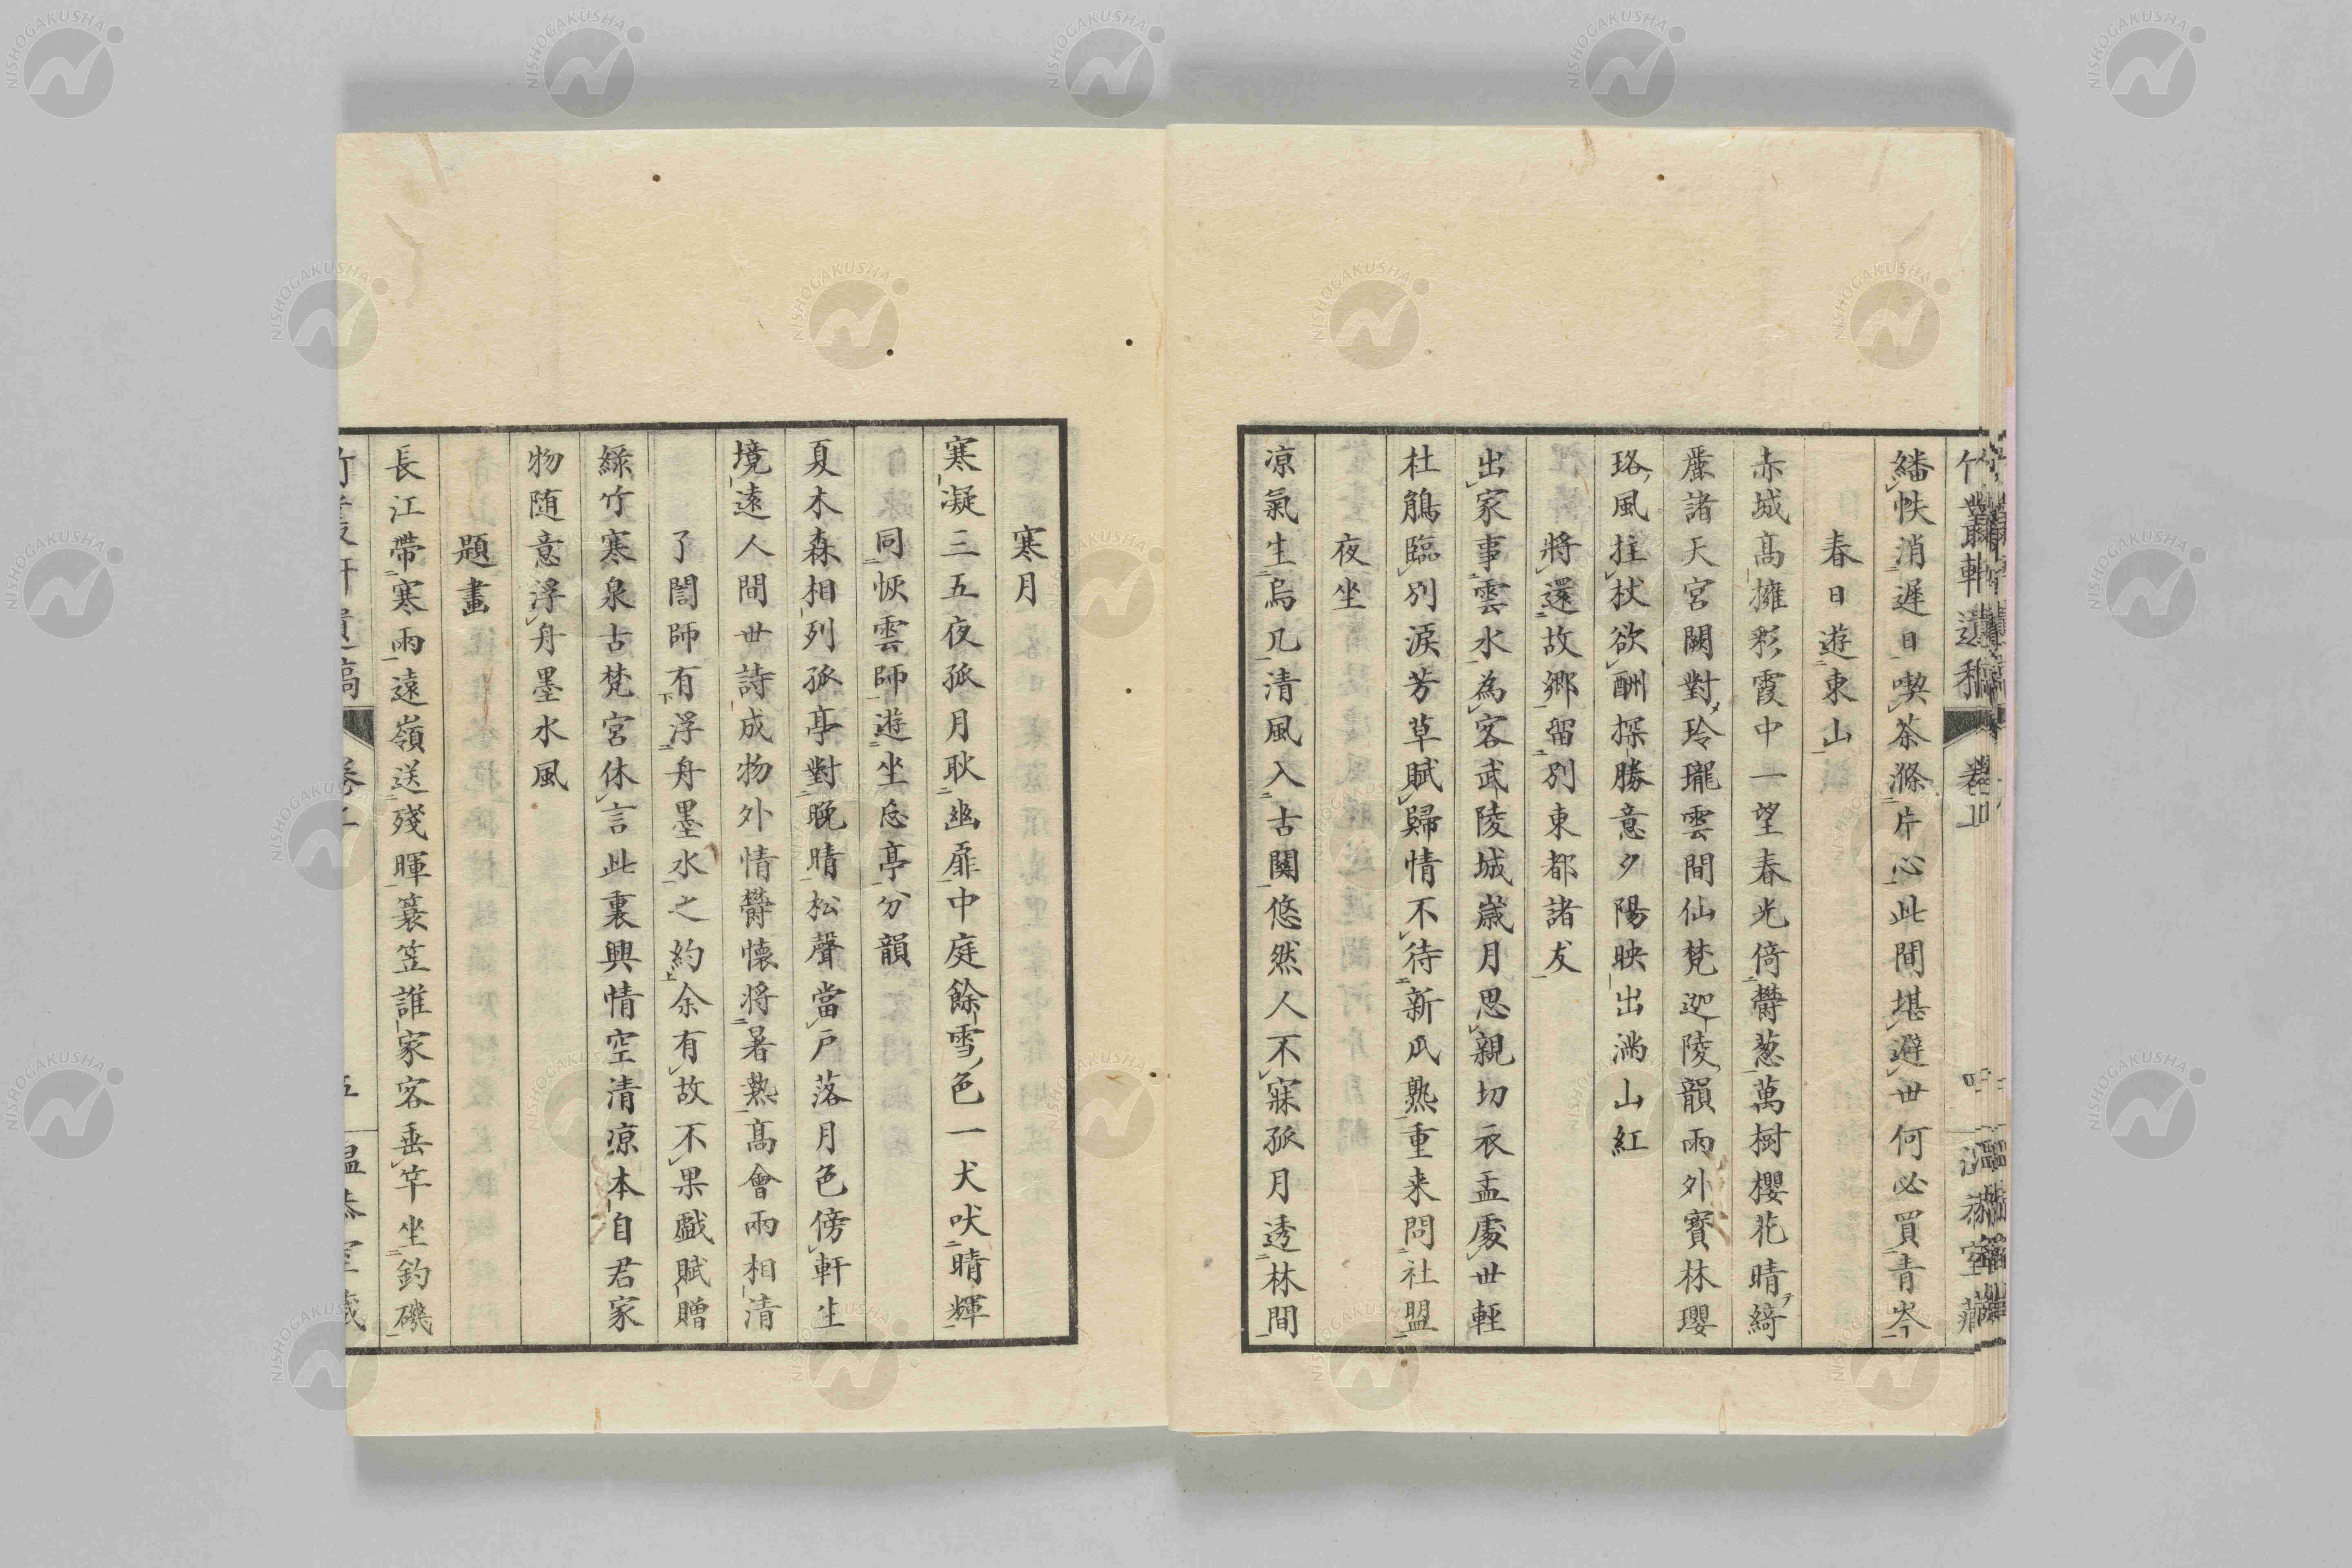 繙帙消遲日喫茶滌片心此間堪避世何必買青岑
春日遊東山
赤城高擁彩霞中一望春光倚鬱葱萬樹櫻花晴綺
麗諸天宮闕對玲瓏雲間仙梵迦陵韻雨外寶林瓔
珞風拄杖欲酬探勝意夕陽映出滿山紅
將還故鄉留別東都諸友
出家事雲水為客武陵城歲月思親切衣盂處世輕
杜鵑臨別淚芳草賦歸情不待新瓜熟重来問社盟
夜坐
凉氣生烏几清風入古關悠然人不寐孤月透林間
寒月
寒凝三五夜孤月耿幽扉中庭餘雪色一犬吠晴輝
同恢雲師遊坐忘亭分韻
夏木森相列孤亭對晚晴松聲當戶落月色傍軒生
境遠人間世詩成物外情鬱懷將暑熱高會兩相清
了誾師有浮舟墨水之約余有故不果戲賦贈
綠竹寒泉古梵宮休言此裏興情空清凉本自君家
物随意浮舟墨水風
題畫
長江帶寒雨遠嶺送殘暉簑笠誰家客垂竿坐釣磯
NISHOGAKUSHA